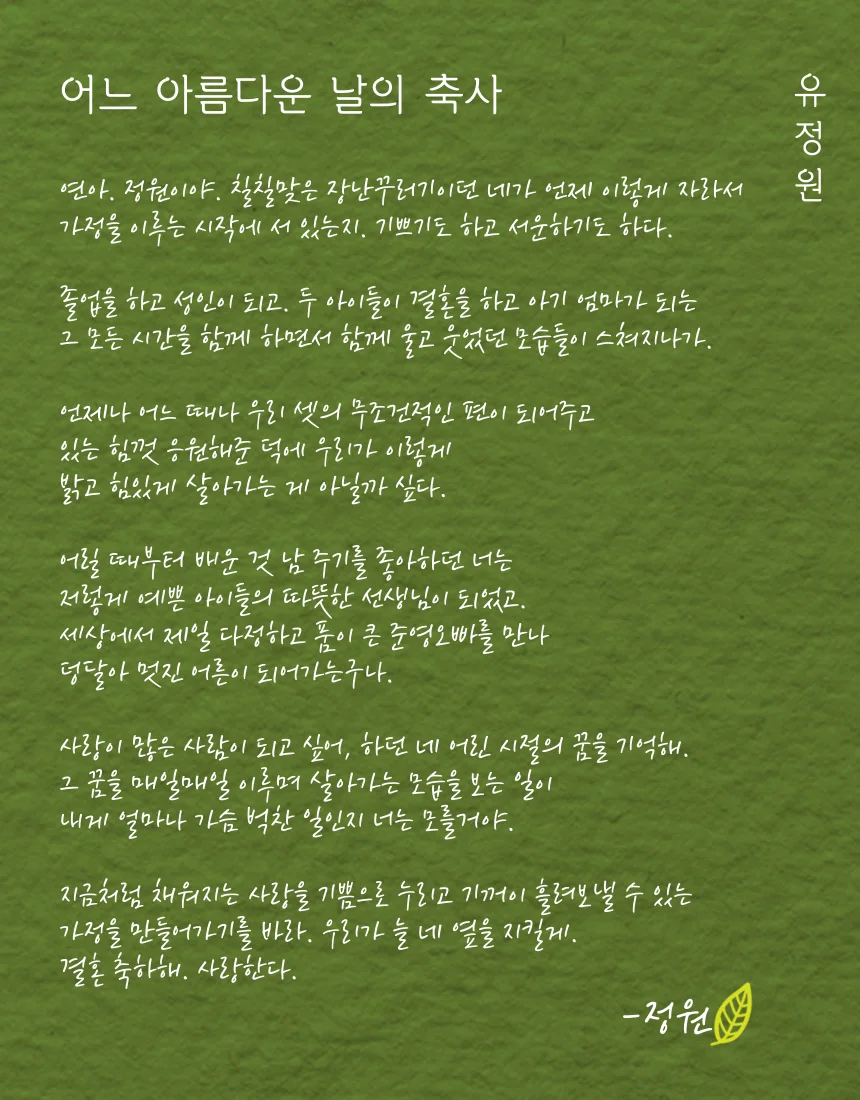 어느 아름다운 날의 축사
유정원
연아. 정원이야. 칠칠맞은 장난꾸러기이던 네가 언제 이렇게 자라서
가정을 이루는 시작에 서 있는지. 기쁘기도 하고 서운하기도 하다.
졸업을 하고 성인이 되고. 두 아이들이 결혼을 하고 아기 엄마가 되는
그 모든 시간을 함께 하면서 함께 울고 웃었던 모습들이 스쳐지나가.
언제나 어느 때나 우리 셋의 무조건적인 편이 되어주고
있는 힘껏 응원해준 덕에 우리가 이렇게
밝고 힘있게 살아가는 게 아닐까 싶다.
어릴 때부터 배운 것 남 주기를 좋아하던 너는
저렇게 예쁜 아이들의 따뜻한 선생님이 되었고.
세상에서 제일 다정하고 품이 큰 준영오빠를 만나
덩달아 멋진 어른이 되어가는구나.
사랑이 많은 사람이 되고 싶어, 하던 네 어린 시절의 꿈을 기억해.
그 꿈을 매일매일 이루며 살아가는 모습을 보는 일이
내게 얼마나 가슴 벅찬 일인지 너는 모를거야.
지금처럼 채워지는 사랑을 기쁨으로 누리고 기꺼이 흘려보낼 수 있는
가정을 만들어가기를 바라. 우리가 늘 네 옆을 지킬게.
결혼 축하해. 사랑한다.
-정원